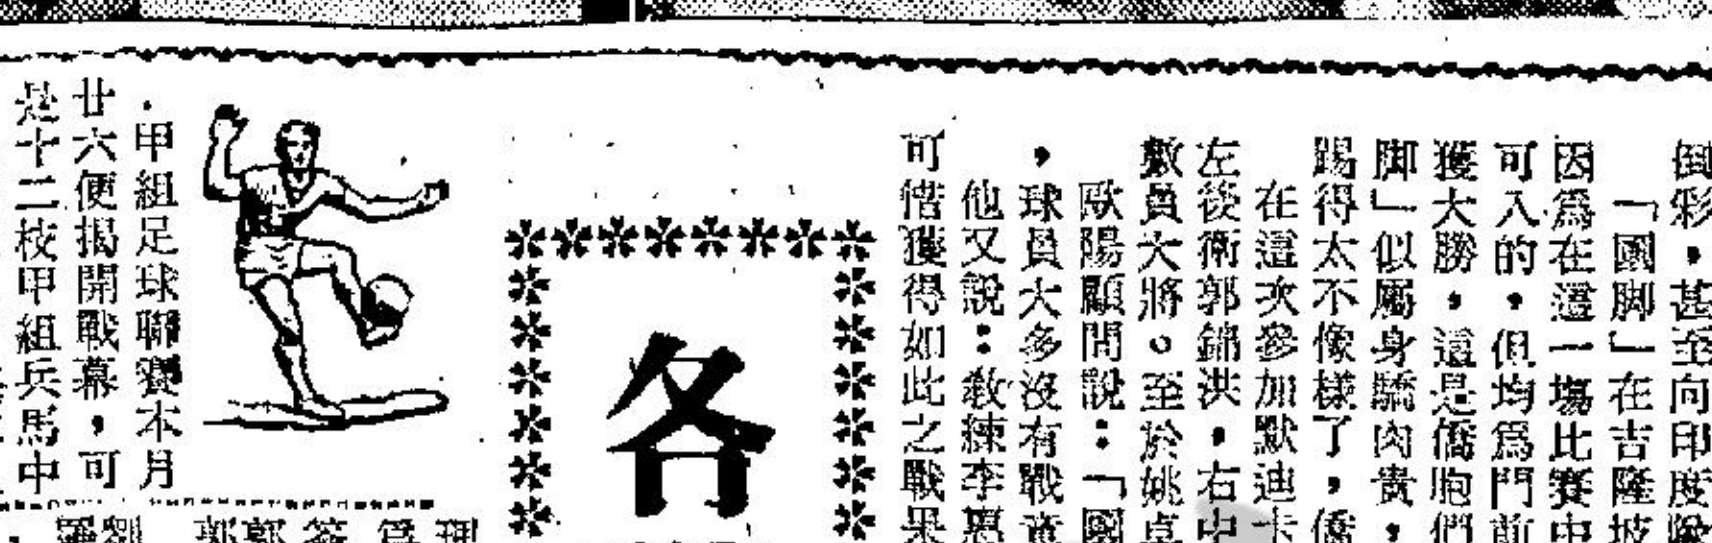 倒彩，甚至向印度
「國脚」在吉隆坡
因爲在這一塲比賽中
可入的，但均爲門前
獲大勝，這是僑胞們
脚」似屬身驕肉貴，
踢得太不像樣了，僑
在這次參加默迪卡
左後衛郭錦洪，右中
數員大將。至於姚卓
歐陽顧問説：「國
，球員大多沒有戰
他又説：教練李惠
可惜獲得如此之戰果
各
．甲組足球聯賽本月
廿六便揭開戰幕，可
是十二枝甲組兵馬中